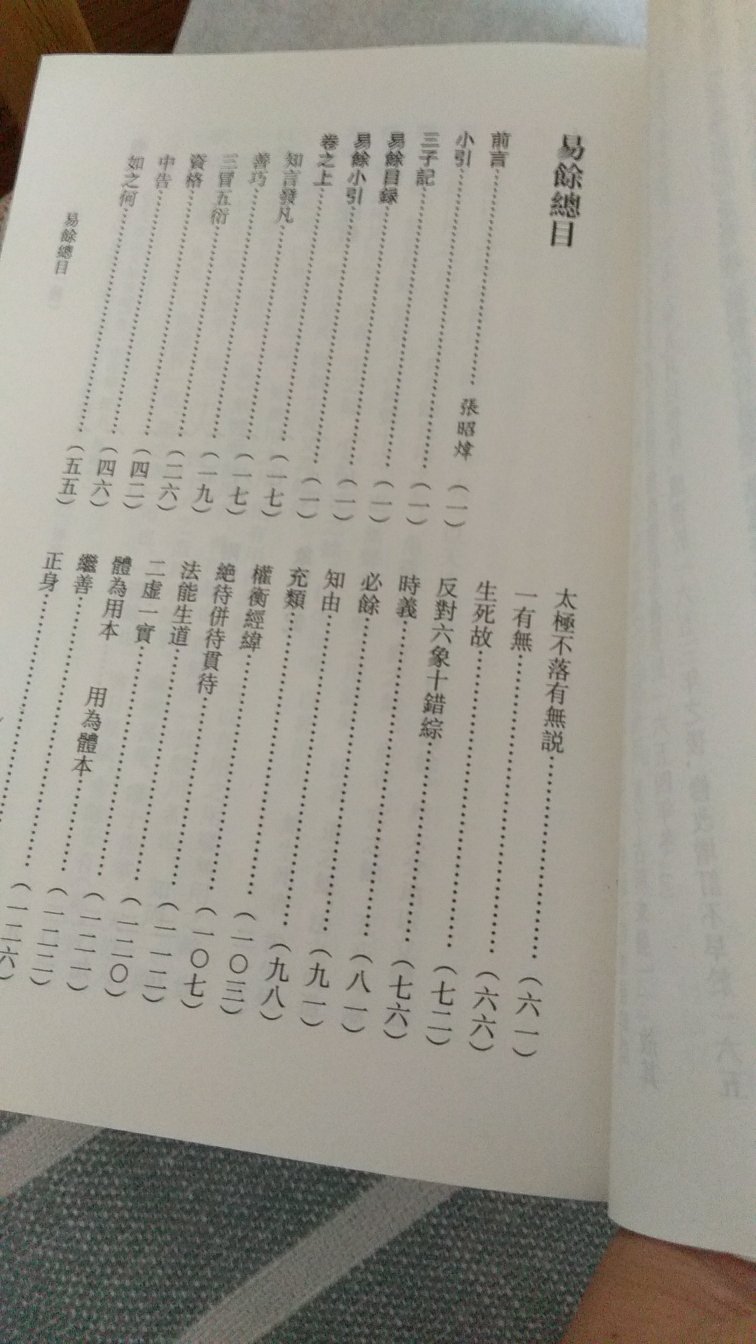 易餘總目
前言……張昭煒（一）
小引……（一）
三子記……（一）
易餘目録……（一）
易餘小引……（一）
卷之上……（一七）
知言發凡……（一七）
善巧……（一九）
三冒五衍……（二六）
資格……（四二）
中告……（四六）
如之何……（五五）
太極不落有無説……（六一）
一有無……（六六）
生死故……（七二）
反對六象十錯綜……（七六）
時義……（八一）
必餘……（九一）
知由……（九八）
充類……（一〇三）
權衡經緯……（一〇七）
絶待併待貫待……（一一二）
法能生道……（一二〇）
二虚一實……（一二一）
體為用本　用為體本……（一二三）
繼善……（一二六）
正身……
易餘總目